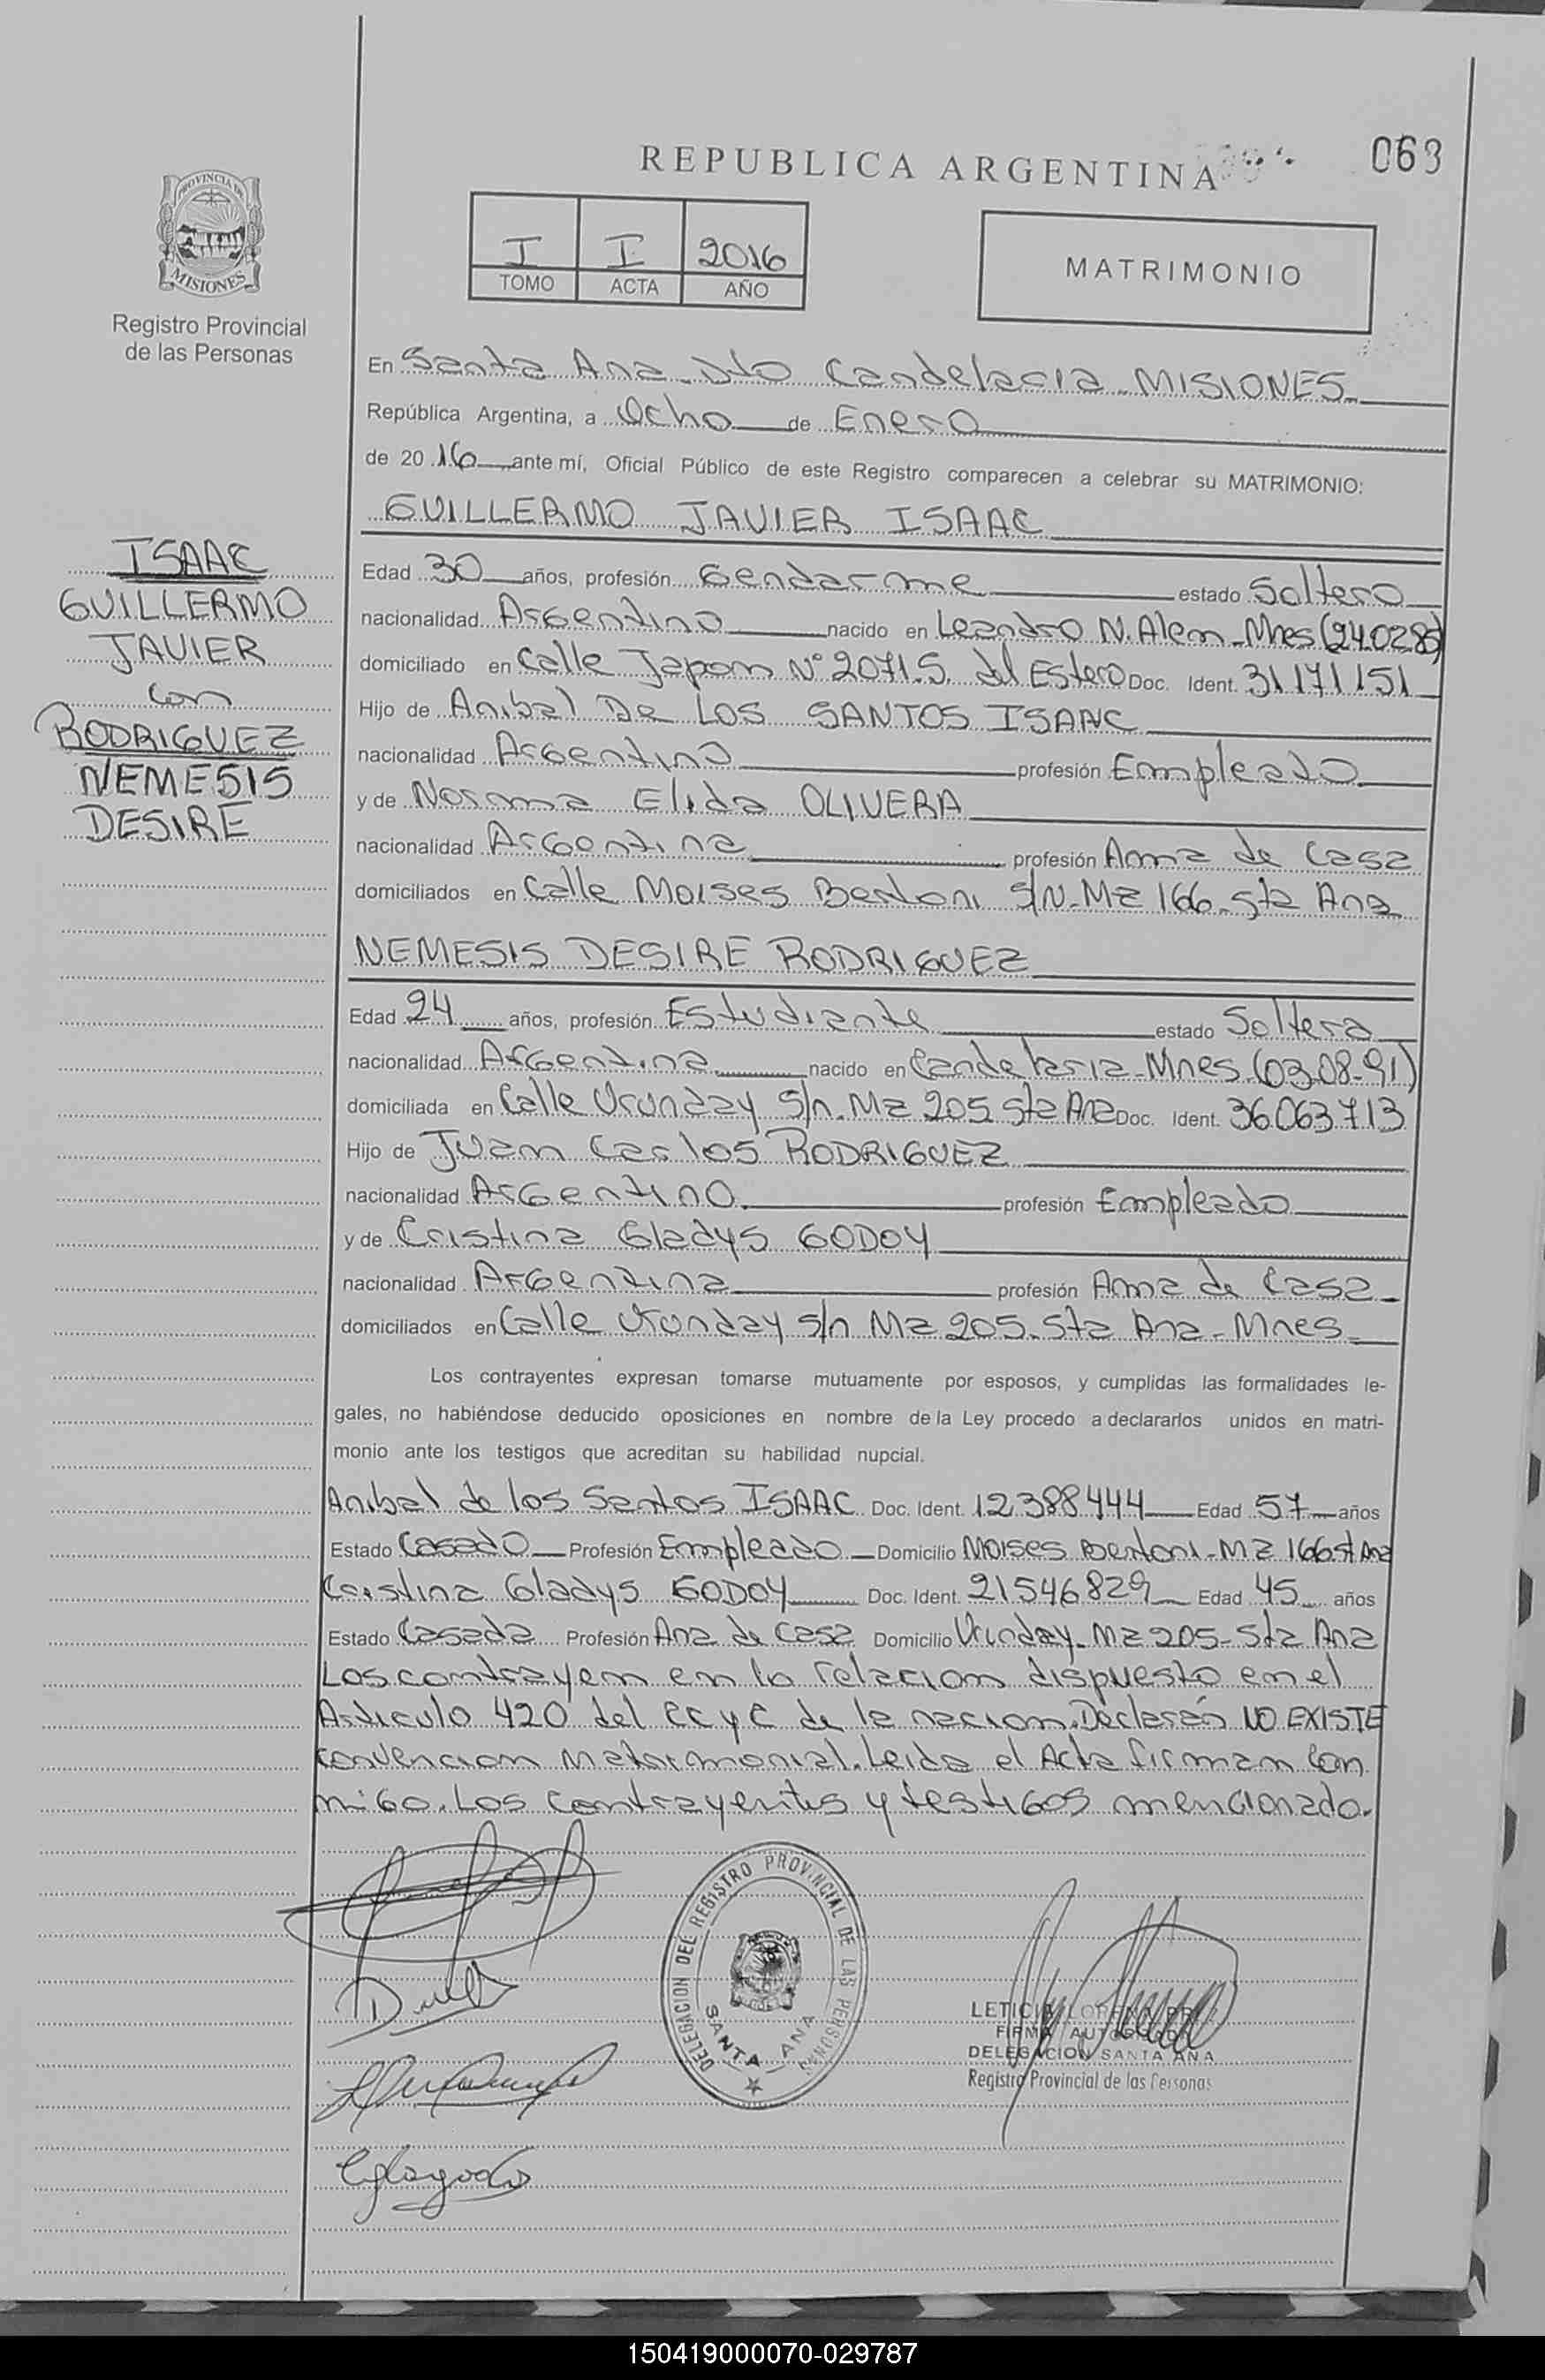 063
REPUBLICA ARGENTINA
PROVINCIA DE
MISIONES
Registro Provincial
de las Personas
I I 2016
TOMO ACTA AÑO
MATRIMONIO
En Santa Ana Dto Candelaria - MISIONES
República Argentina, a Ocho de Enero
de 2016 ante mí, Oficial Público de este Registro comparecen a celebrar su MATRIMONIO:
GUILLERMO JAVIER ISAAC
ISAAC
GUILLERMO
JAVIER
con
RODRIGUEZ
NEMESIS
DESIRE
Edad 30 años, profesión Gendarme estado Soltero
nacionalidad Argentino nacido en Leandro N. Alem - Mnes (24.02.85)
domiciliado en Calle Japon N° 207 I.S. del Estero Doc. Ident. 31171151
Hijo de Anibal De LOS SANTOS ISAAC
nacionalidad Argentino profesión Empleado
y de Norma Elida OLIVERA
nacionalidad Argentina profesión Ama de Casa
domiciliados en Calle Moises Bertoni S/N-Mz 166-Sta Ana
NEMESIS DESIRE RODRIGUEZ
Edad 24 años, profesión Estudiante estado Soltera
nacionalidad Argentina nacido en Candelaria-Mnes-(03-08-91)
domiciliada en Calle Urunday S/n-Mz 205 Sta Ana Doc. Ident. 36.063.713
Hijo de Juan Carlos RODRIGUEZ
nacionalidad Argentino profesión Empleado
y de Cristina Gladys GODOY
nacionalidad Argentina profesión Ama de Casa
domiciliados en Calle Urunday s/n Mz 205-Sta Ana-Mnes
Los contrayentes expresan tomarse mutuamente por esposos, y cumplidas las formalidades le-
gales, no habiéndose deducido oposiciones en nombre de la Ley procedo a declararlos unidos en matri-
monio ante los testigos que acreditan su habilidad nupcial.
Anibal de los Santos ISAAC Doc. Ident. 12388444 Edad 57 años
Estado Casado Profesión Empleado Domicilio Moises Bertoni-Mz 166 St Ana
Cristina Gladys GODOY Doc. Ident. 21546829 Edad 45 años
Estado Casada Profesión Ama de Casa Domicilio Urunday-Mz 205-Sta Ana
Los contrayem en lo relacion dispuesto en el
Articulo 420 del CC y C de la nacion. Declarán NO EXISTE
convencion Matrimonial. Leida el Acta firman con
migo. Los contrayentes y testigos mencionado.
DELEGACION DEL REGISTRO PROVINCIAL DE LAS PERSONAS
SANTA ANA
LETICIA LORENA
FIRMA AUTORIZADA
DELEGACION SANTA ANA
Registro Provincial de las Personas
150419000070-029787